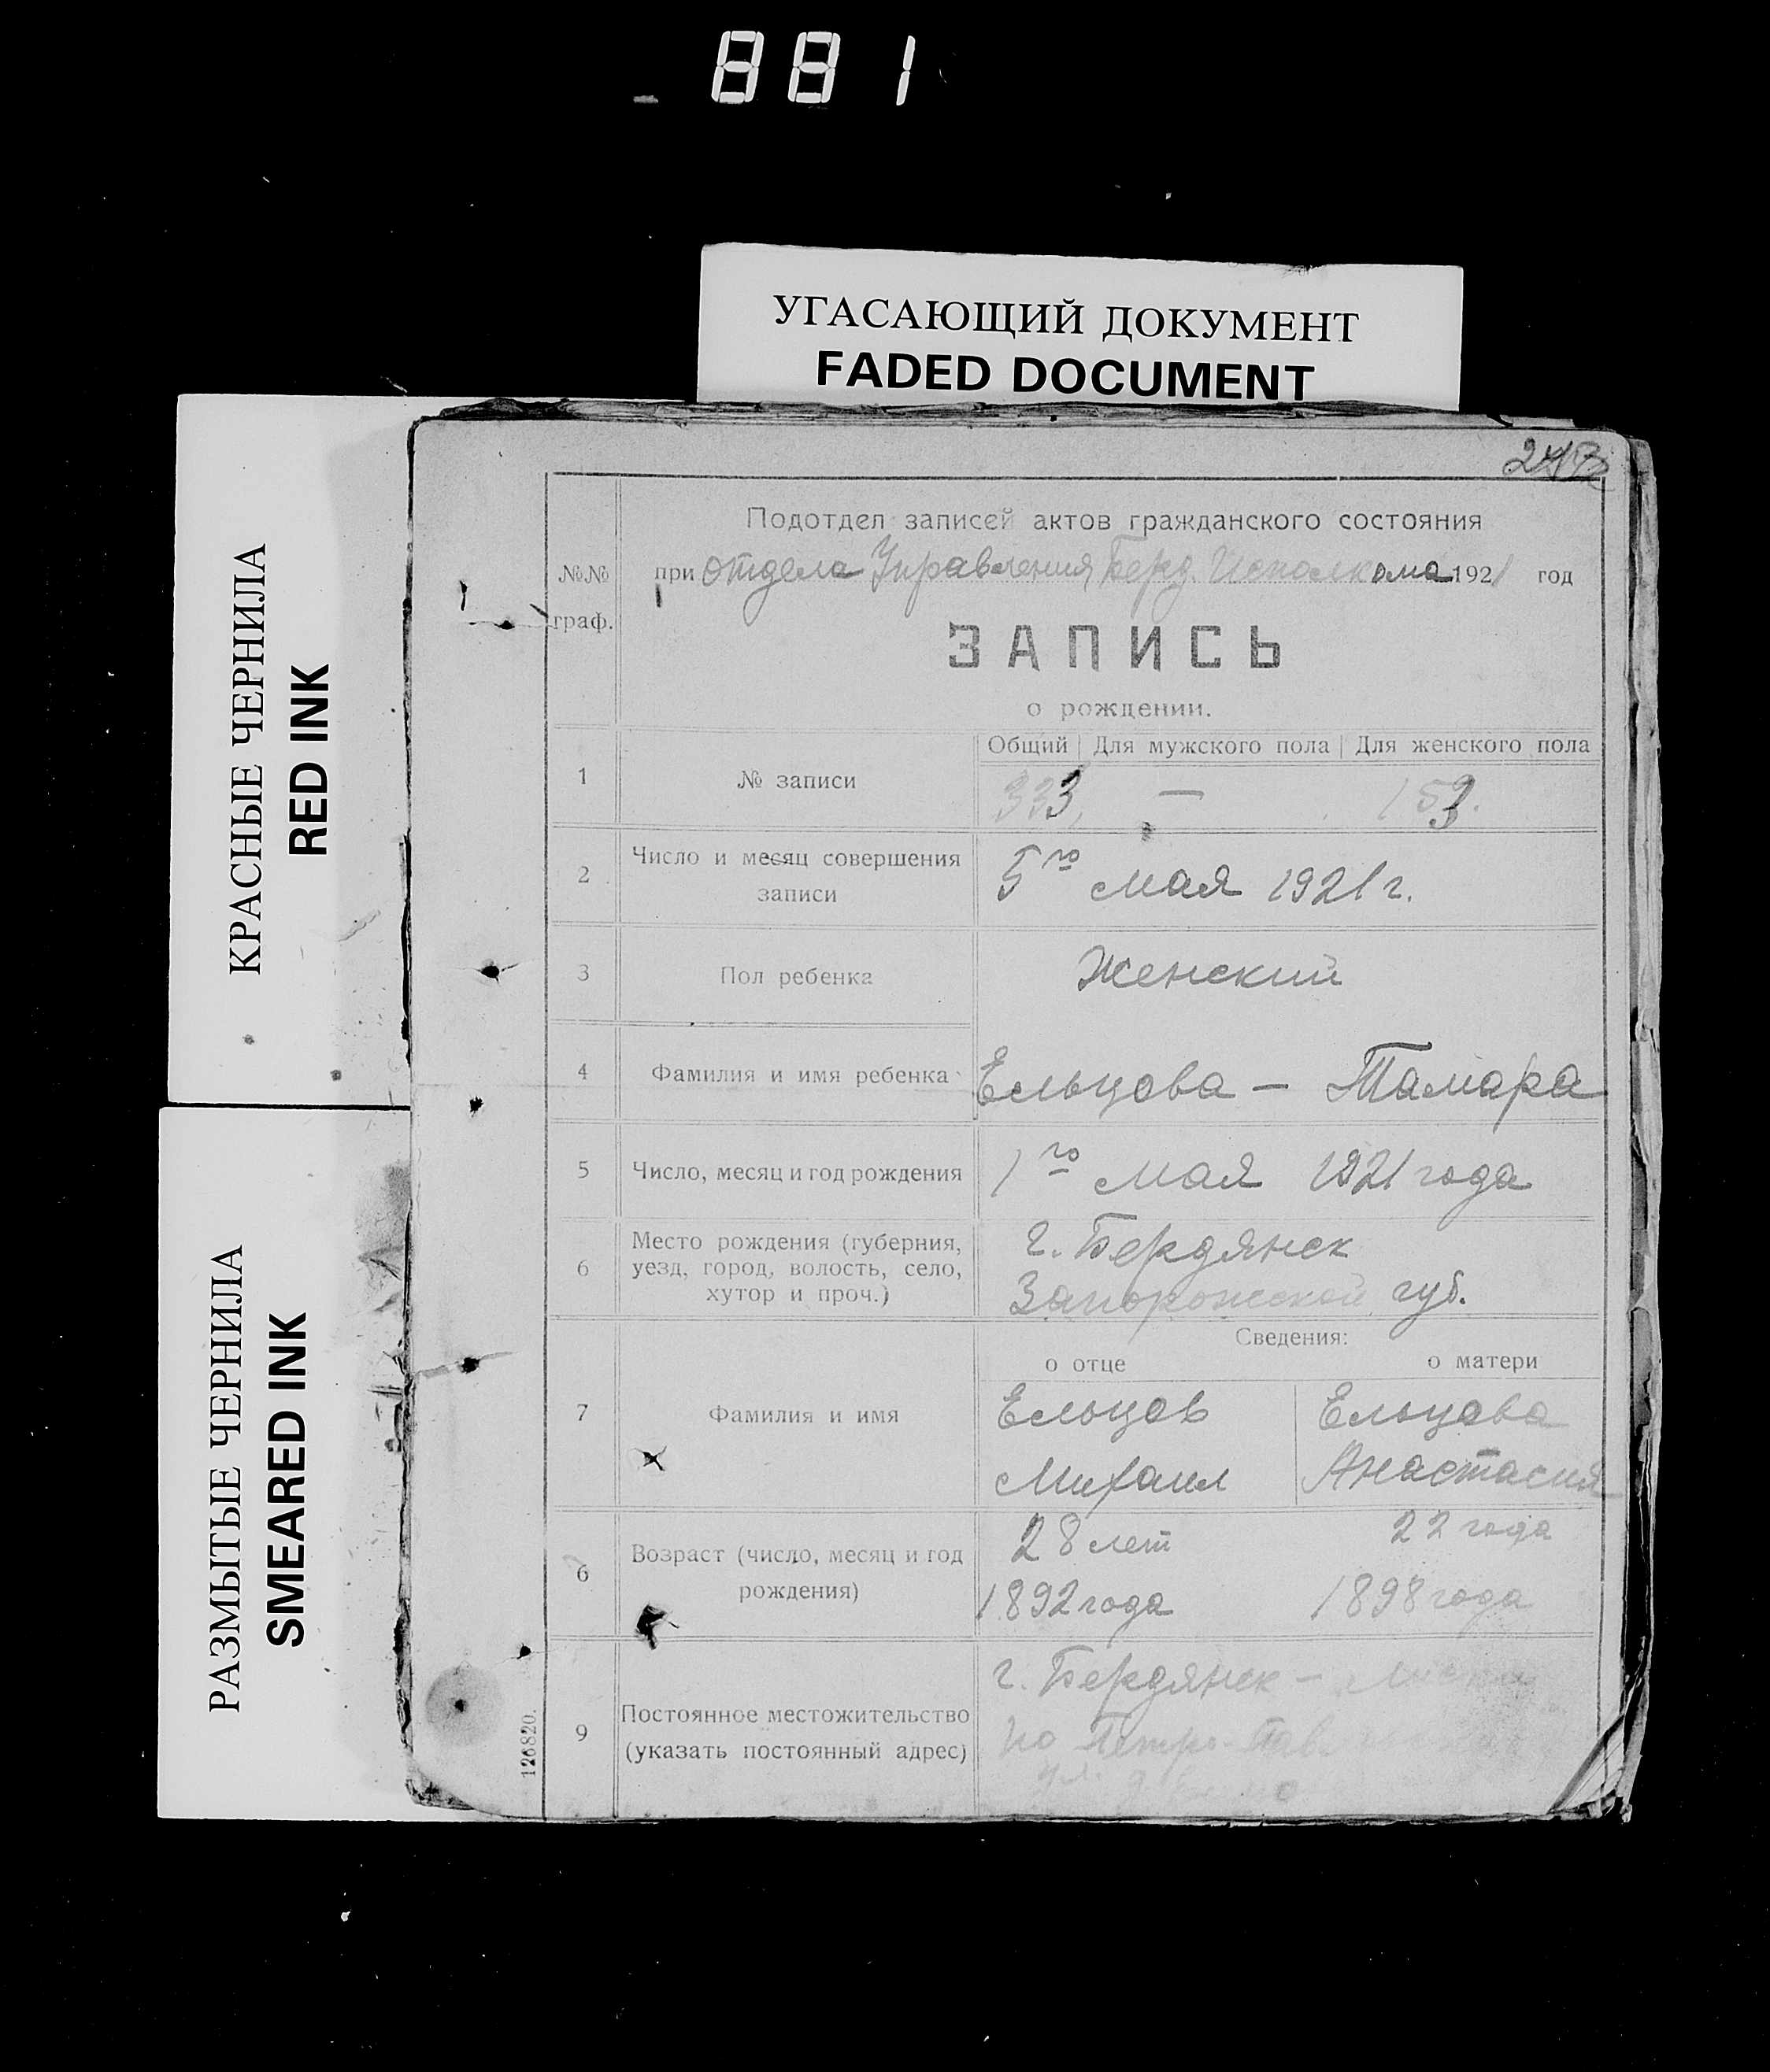 881
УГАСАЮЩИЙ ДОКУМЕНТ
FADED DOCUMENT
КРАСНЫЕ ЧЕРНИЛА
RED INK
РАЗМЫТЫЕ ЧЕРНИЛА
SMEARED INK
Подотдел записей актов гражданского состояния
№№ граф.
при отдела Управления Берд. Исполкома 1921 год
ЗАПИСЬ
о рождении.
Общий Для мужского пола Для женского пола
1 № записи 333, — 153.
2 Число и месяц совершения записи 5го мая 1921 г.
3 Пол ребенка Женский
4 Фамилия и имя ребенка Ельцова — Тамара
5 Число, месяц и год рождения 1го мая 1921 года
6 Место рождения (губерния, уезд, город, волость, село, хутор и проч.)
г. Бердянск
Запорожской губ.
Сведения:
о отце о матери
7 Фамилия и имя
Ельцов Ельцова
Михаил Анастасия
6 Возраст (число, месяц и год рождения)
28 лет 22 года
1892 года 1898 года
9 Постоянное местожительство (указать постоянный адрес)
г. Бердянск —
по
ул.
126820.